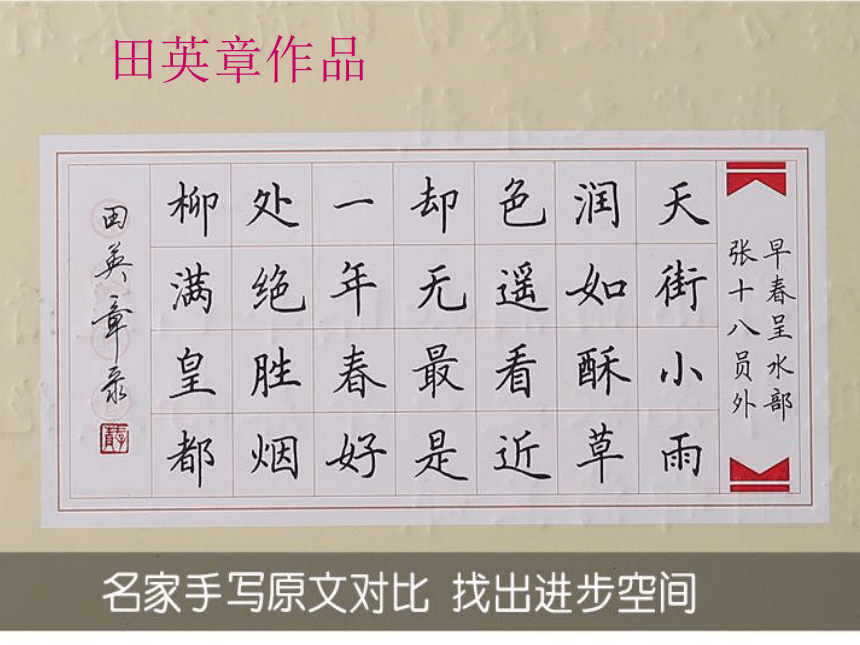 田英章作品
早春呈水部
张十八员外
天街小雨
润如酥草
色遥看近
却无最是
一年春好
处绝胜烟
柳满皇都
田英章录
名家手写原文对比 找出进步空间